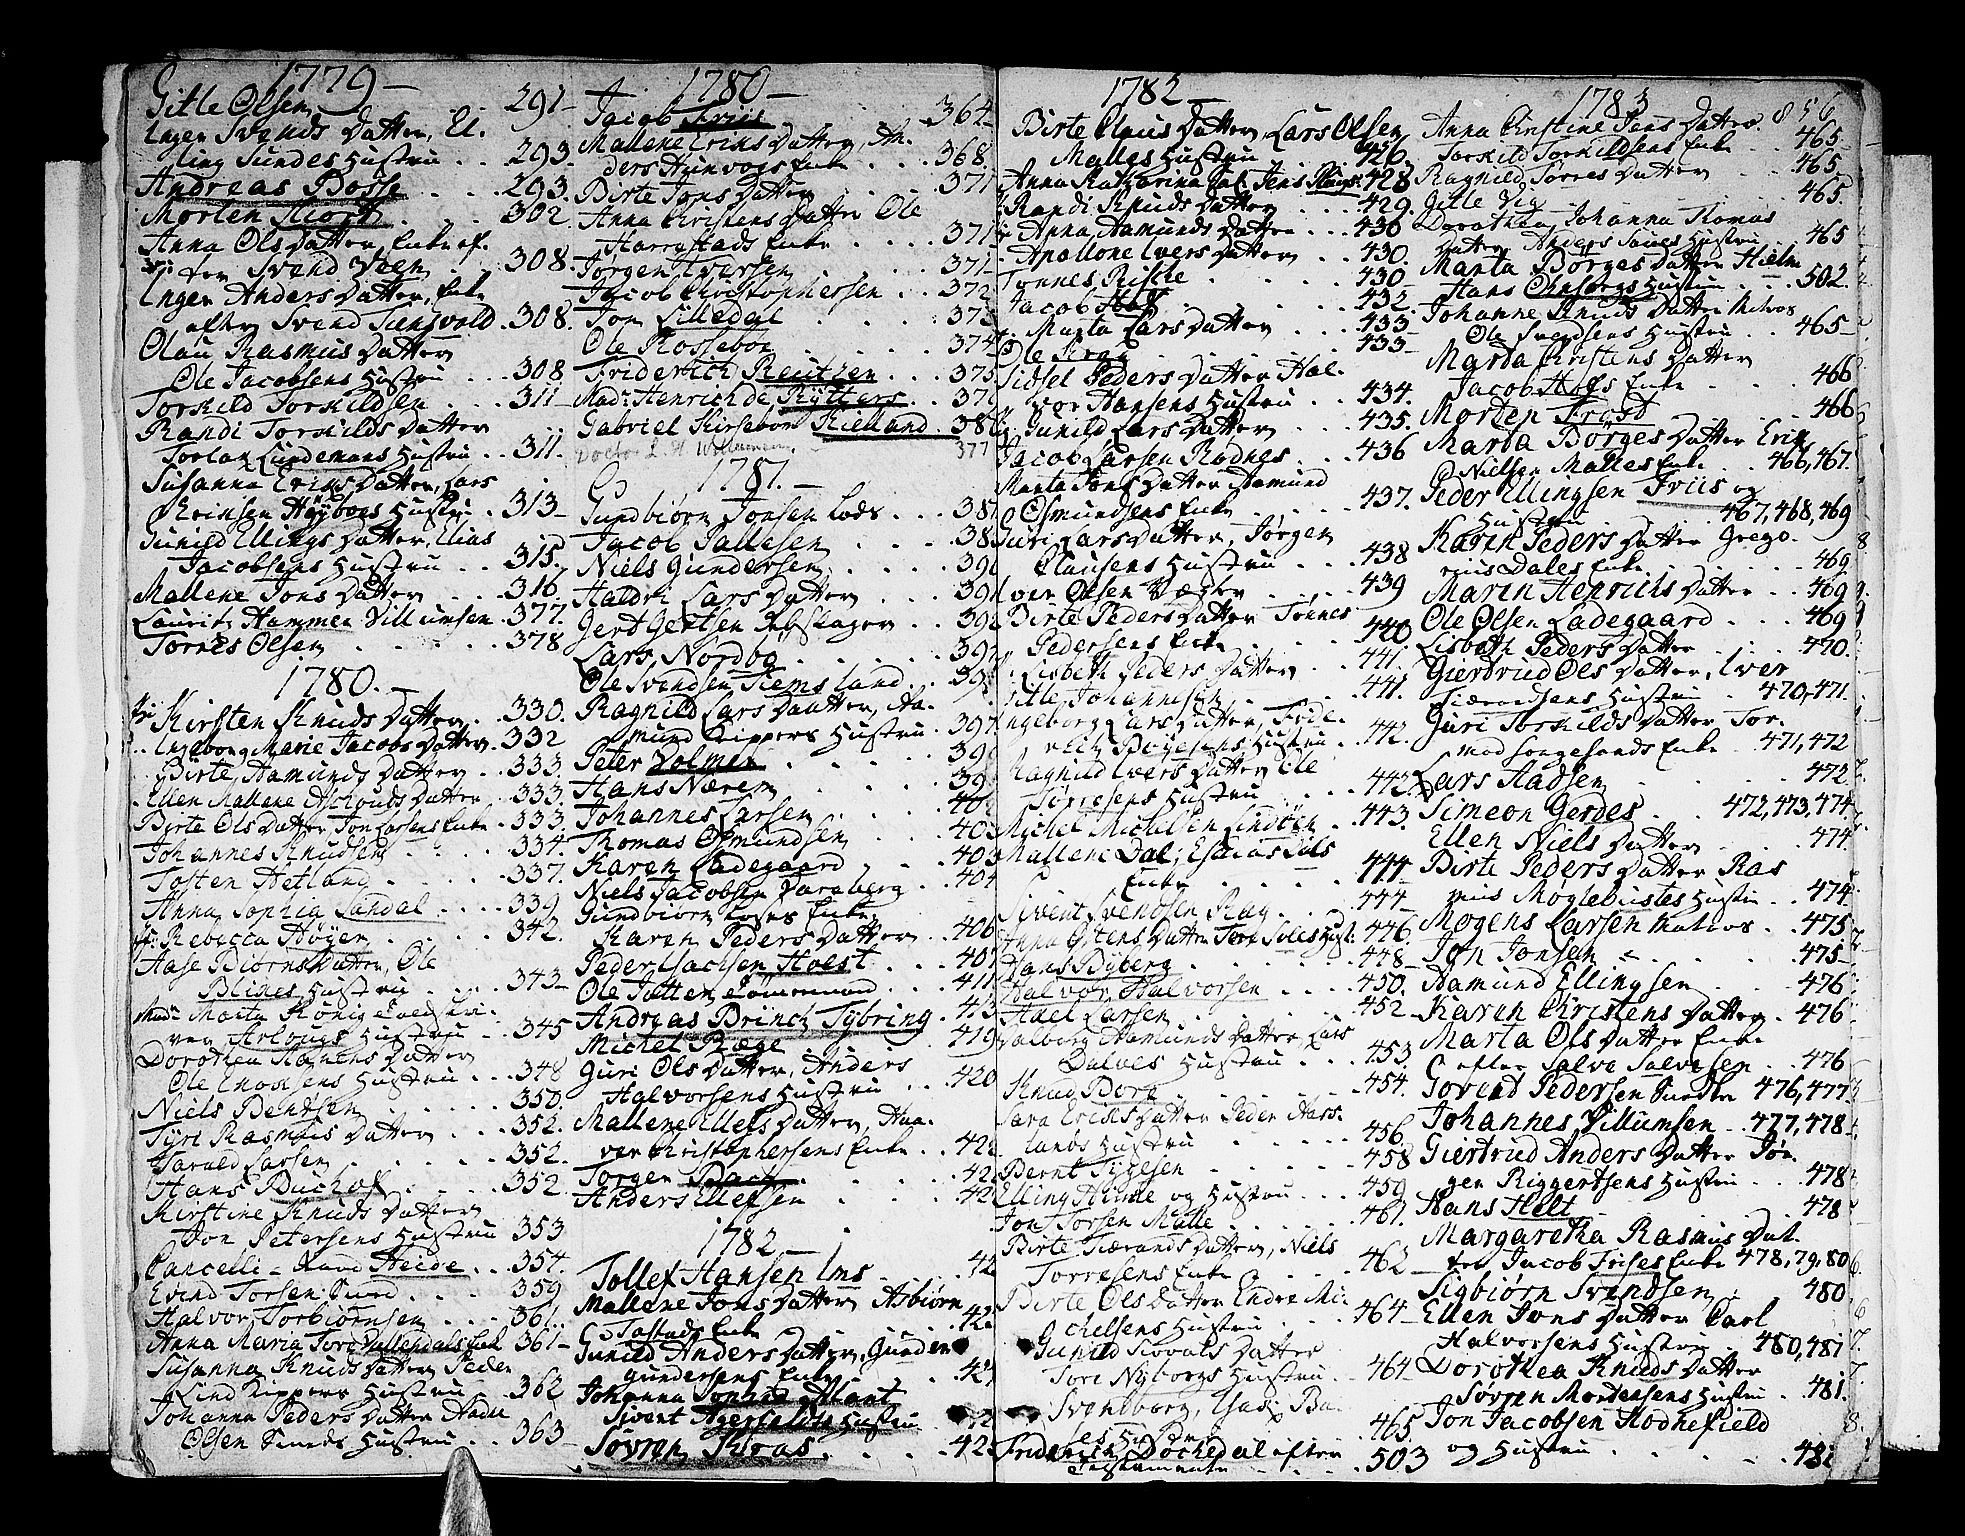 1779 —
Gitle Olsen . . 291 –
Inger Svends Datter, El.
ling Sundes Hustru . . 293.
Andreas Bosse . . . 293.
Morten Hiort . . . 302.
Anna Ols Datter, Enke ef.
ter Svend Veen . . 308.
Inger Anders Datter, Enke
after Svend Tiensvold . 308.
Olau Rasmus Datter
Ole Jacobsens Hustru . . . 308
Torkild Torkildsen . . . 311
Randi Torkilds Datter
Torlak Lundemans Hustru . . 311.
Susanna Erics Datter, Lars
Hrinsen Höyboes Hustru . 313 –
Gunild Ellings Datter, Elias
Jacobsens Hustru . . 315.
Mallene Jons Datter . . . 316.
Lauritz Hammer Villumsen . 377.
Tornes Olsen . . . . . 378
1780. —
Kirsten Knuds Datter . 330.
Ingeborg Marie Jacobs Datter . 332
Birte Aamunds Datter . . 333.
Ellen Mallene Datter . . 333.
Birte Ols Datter Jon Larsens Enke . 333
Johannes Knudsen . . . . 334.
Tosten Hetland . . . . 337.
Anna Sophia Sandal . . . . 339
Rebecca Höyer . . . . 342.
Aase Biörns Datter, Ole
Blixes Hustru . . . . 343 –
Mad: Marta König
ver Hustru . . 345
Dorothea Datter
Ole Hustru . . . 348
Niels Bentsen . . . . 350.
Tyri Rasmus Datter . . . 352.
Tarald Larsen . . . . 352.
Hans Buchof . . . . 352
Kirstine Knuds Datter
Jon Petersens Hustru 353
Cancelli – Raad Heide . . 354.
Evind Torsen Smed . . . 359
Halvor Torbiörnsen . . . 361.
Anna Maria Tore Enke 361 –
Susanna Knuds Datter Peder
Lind Kippers Hustru . . 362
Johanna Peders Datter Aadne
Olsen Smeds Hustru . . . 363 –
1780 —
Jacob Friis . . . 364
Mallene Erics Datter, An.
ders Hunvogs Enke . . . 368
Birte Jons Datter . . . 371
Anna Christens Datter Ole
Harrestads Enke . . . . 371
Jörgen Iversen . . . . 371 –
Jacob Christophersen . . 372
Jon Lilledal . . . . 373
Ole Rosseboe . . . . 374
Friderich Reutzen . . . 375
Mad: Henrich de Rÿtters . . 37
Gabriel Kirsebom Kielland . 38
Doctor L. H. 377
1781. —
Gundbiörn Jonsen Lods . . . 381
Jacob Pallesen . . . . 38
Niels Gundersen . . . . 39
Haldri Lars Datter . . . 39
Gert Gertsen Rebslager . . 39
Lars Nordbö . . . . 39
Ole Svendsen Tiemsland . . 39
Ragnild Lars Datter, Aa.
mund Kippers Hustru . 397
Peter Volmer . . . . 39
Hans Nærem . . . . 39
Johannes Larsen . . . . 40
Thomas Osmundsen . . . 403
Karen Ladegaard . . . 403
Niels Jacobsen . . 404
Gundbiörn Loses Enke
Karen Peders Datter . . 406
Peder Isachsen Holst . . . 407
Ole Tömmermand . . 411
Andreas Brinch Tybring . 413
Michel Ræge . . . . 419
Guri Ols Datter, Anders
Halvorsens Hustru . . . 420
Mallene Ellefs Datter, Haa.
ver Christophersens Enke . . 422
Jörgen Bach . . . . 42
Anders Ellefsen . . . . 42
1782 —
Tollef Hansen Ims . . . 42
Mallene Jons Datter Asbiörn
Tastads Enke . . . . 42
Gunild Anders Datter, Gunder
gundersens Enke . . . 424
Johanna Sophia Alant
Sivert Agerfaldts Hustru . 42
Sören Kras . . . . 42
1782 —
Birte Claus Datter, Lars Olsen
Malles Hustru . . . 426
Anna Katharina Sal. Jens 428
Randi Knuds Datter . . . 429.
Anna Aamunds Datter . . . 430
Apollone Ivers Datter . . 430.
Tönnes Riske . . . . 430
Jacob Hof . . . . 432.
Marta Lars Datter . . . 433
Ole Krag . . . . 433 –
Sidsel Peders Datter Hal.
vor Hansens Hustru . . . 434.
Gunild Lars Datter . . . 435.
Jacob Larsen Rodnes . . . 436
Marta Jons Datter Aamund
Osmundsens Enke . . . 437.
Guri Lars Datter, Jörgen
Clausens Hustru . . . 438
Iver Olsen Vægter . . . . 439
Birte Peders Datter Tönnes
Pedersens Enke . . . . 440
Lisbeth Peders Datter . . . 441.
Gitle Johannesen . . . . 441.
Ingeborg Lars Datter, Fride.
rich Böyesens Hustru . 442.
Ragnild Ivers Datter Ole
Törresens Hustru . . . 442
Michel Michelsen Lindöen . 443.
Mallene Dal; Esaias Dals
Enke . . . . 444.
Sivert Svendsen Rag . . . . 444
Anna Datter Tore Hust: . 446.
Hans Byberg . . . . 448 –
Halvor Halvorsen . . . . 450.
Axel Larsen . . . . 452 –
Valborg Aamunds Datter, Lars
Dalves Hustru . . . 453.
Knud Borg . . . . 454.
Sara Erichs Datter Peder Haas.
lands Hustru . . . . 456
Bernt Tygesen . . . . 458
Elling Hinne og Hustru . . . 459
Jon Torsen Malle . . . . 461.
Birte Tiærands Datter, Niels
Torresens Enke . . . . 462
Birte Ols Datter Endre Mi.
chelsens Hustru . . . 464 –
Gunild Siovats Datter
Tore Nyborgs Hustru . . 464.
Svenborg, Ba.
Hustru 465.
Friderich Dochedal efter
Testamente . . . . 503
1783 856
Anna Kirstine Jens Datter.
Torkild Torkildsens Enke . . 465
Ragnild Torres Datter . . . 465.
Gitle Vig . . . . 465.
Dorothea Johanna Thomas
Datter Anders Hustru 465
Marta Börges Datter Hielm
Hans Hustru . . . 502.
Johanne Knuds Datter Matros
Ole Svendsens Hustru . . . 465 –
Marta Christens Datter
Jacob Hofs Enke . . . 466
Morten Frost . . . . 466
Marta Börges Datter Erik
Nielsen Malles Enke . . 466, 467.
Peder Ellingsen Friis og
Hustru 467, 468, 469
Karen Peders Datter Grego.
rius Dales Enke . . . . 469
Maren Henrichs Datter . . 469
Ole Olsen Ladegaard . . . . 469
Lisbeth Peders Datter . . . . 470.
Giertrud Ols Datter, Iver
Tiærandsens Hustru . . 470, 471.
Guri Torkilds Datter Tor.
mod Songesands Enke . . 471, 472
Lars Aadsen . . . . 472
Simeon Gerdes . . . 472, 473, 474
Ellen Niels Datter . . . . 474.
Birte Peders Datter Ras
mus Möglebustes Hustru . . 474.
Mogens Larsen Matros . . 475
Jon Jonsen . . . . 475
Aamund Ellingsen . . . 476
Karen Christens Datter . 476
Marta Ols Datter Enke
efter Salve Salvesen . . . 476
Govert Pedersen Snedker 476, 477
Johannes Villumsen . . 477, 478
Giertrud Anders Datter Jör.
gen Riggertsens Hustru . . . 478
Hans Holt . . . . 478
Margaretha Rasmus Dat.
ter Jacob Friises Enke 478, 79, 80
Sigbiörn Svendsen . . . 480
Ellen Jons Datter Carl
Halvorsens Hustru . . . 480, 481
Dorothea Knuds Datter
Sövren Mortensens Hustru . . 481.
Jon Jacobsen Rodnefield
og Hustru . . . . 481